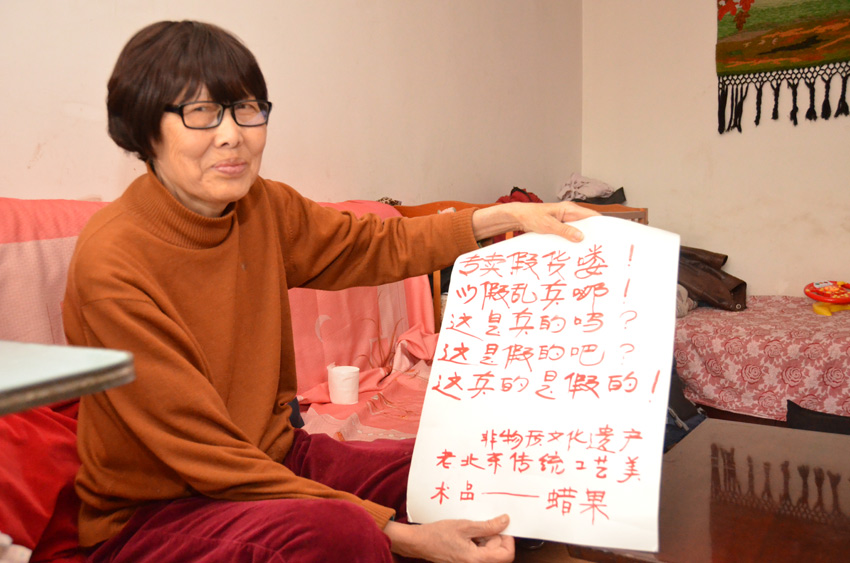 专卖假货喽！
以假乱真哪！
这是真的吗？
这是假的吧？
这真的是假的！
非物质文化遗产
老北京传统工艺美
术品——蜡果